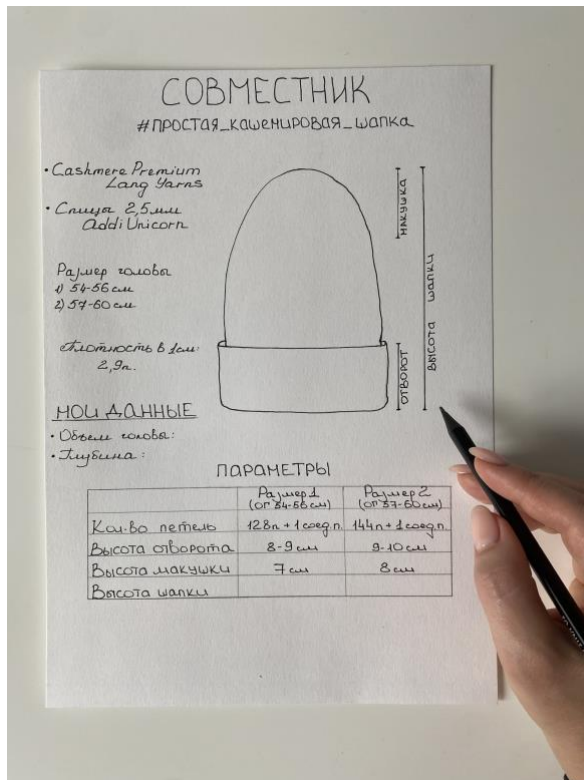 СОВМЕСТНИК
#ПРОСТАЯ_КАШЕМИРОВАЯ_ШАПКА
• Cashmere Premium
Lang Yarns
• Спицы 2,5мм
Addi Unicorn
Размер головы
1) 54-56см
2) 57-60см
Плотность в 1см:
2,9п.
МАКУШКА
ВЫСОТА ШАПКИ
ОТВОРОТ
МОИ ДАННЫЕ
• Объем головы:
• Глубина:
ПАРАМЕТРЫ
Размер 1 Размер 2
(ОГ 54-56см) (ОГ 57-60см)
Кол-во петель 128п + 1 соед.п. 144п + 1 соед.п.
Высота отворота 8-9см 9-10см
Высота макушки 7см 8см
Высота шапки